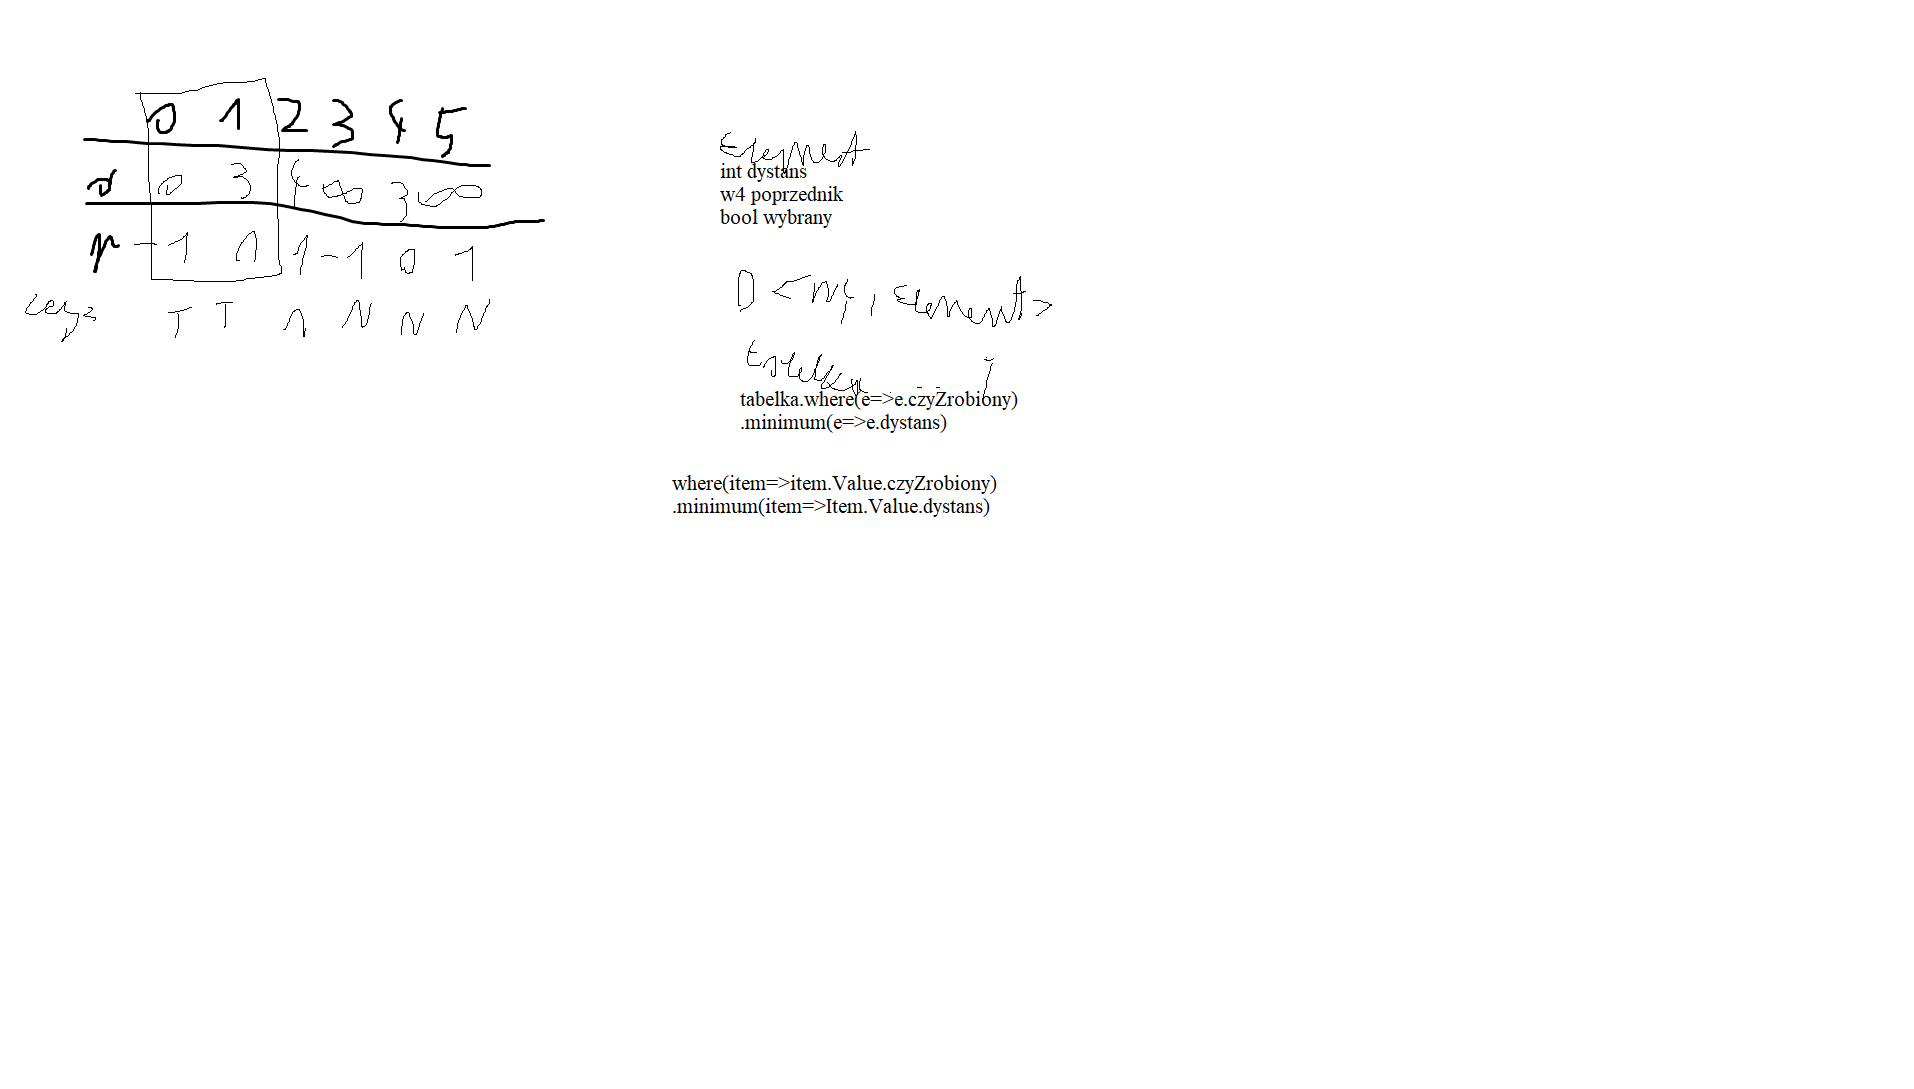 0 1 2 3 4 5
d 0 3 4 ∞ 3 ∞
p -1 1 1 -1 0 1
T T N N N
Element
int dystans
w4 poprzednik
bool wybrany
D <w4, Element>
tabelka
tabelka.where(e=>e.czyZrobiony)
.minimum(e=>e.dystans)
where(item=>item.Value.czyZrobiony)
.minimum(item=>Item.Value.dystans)